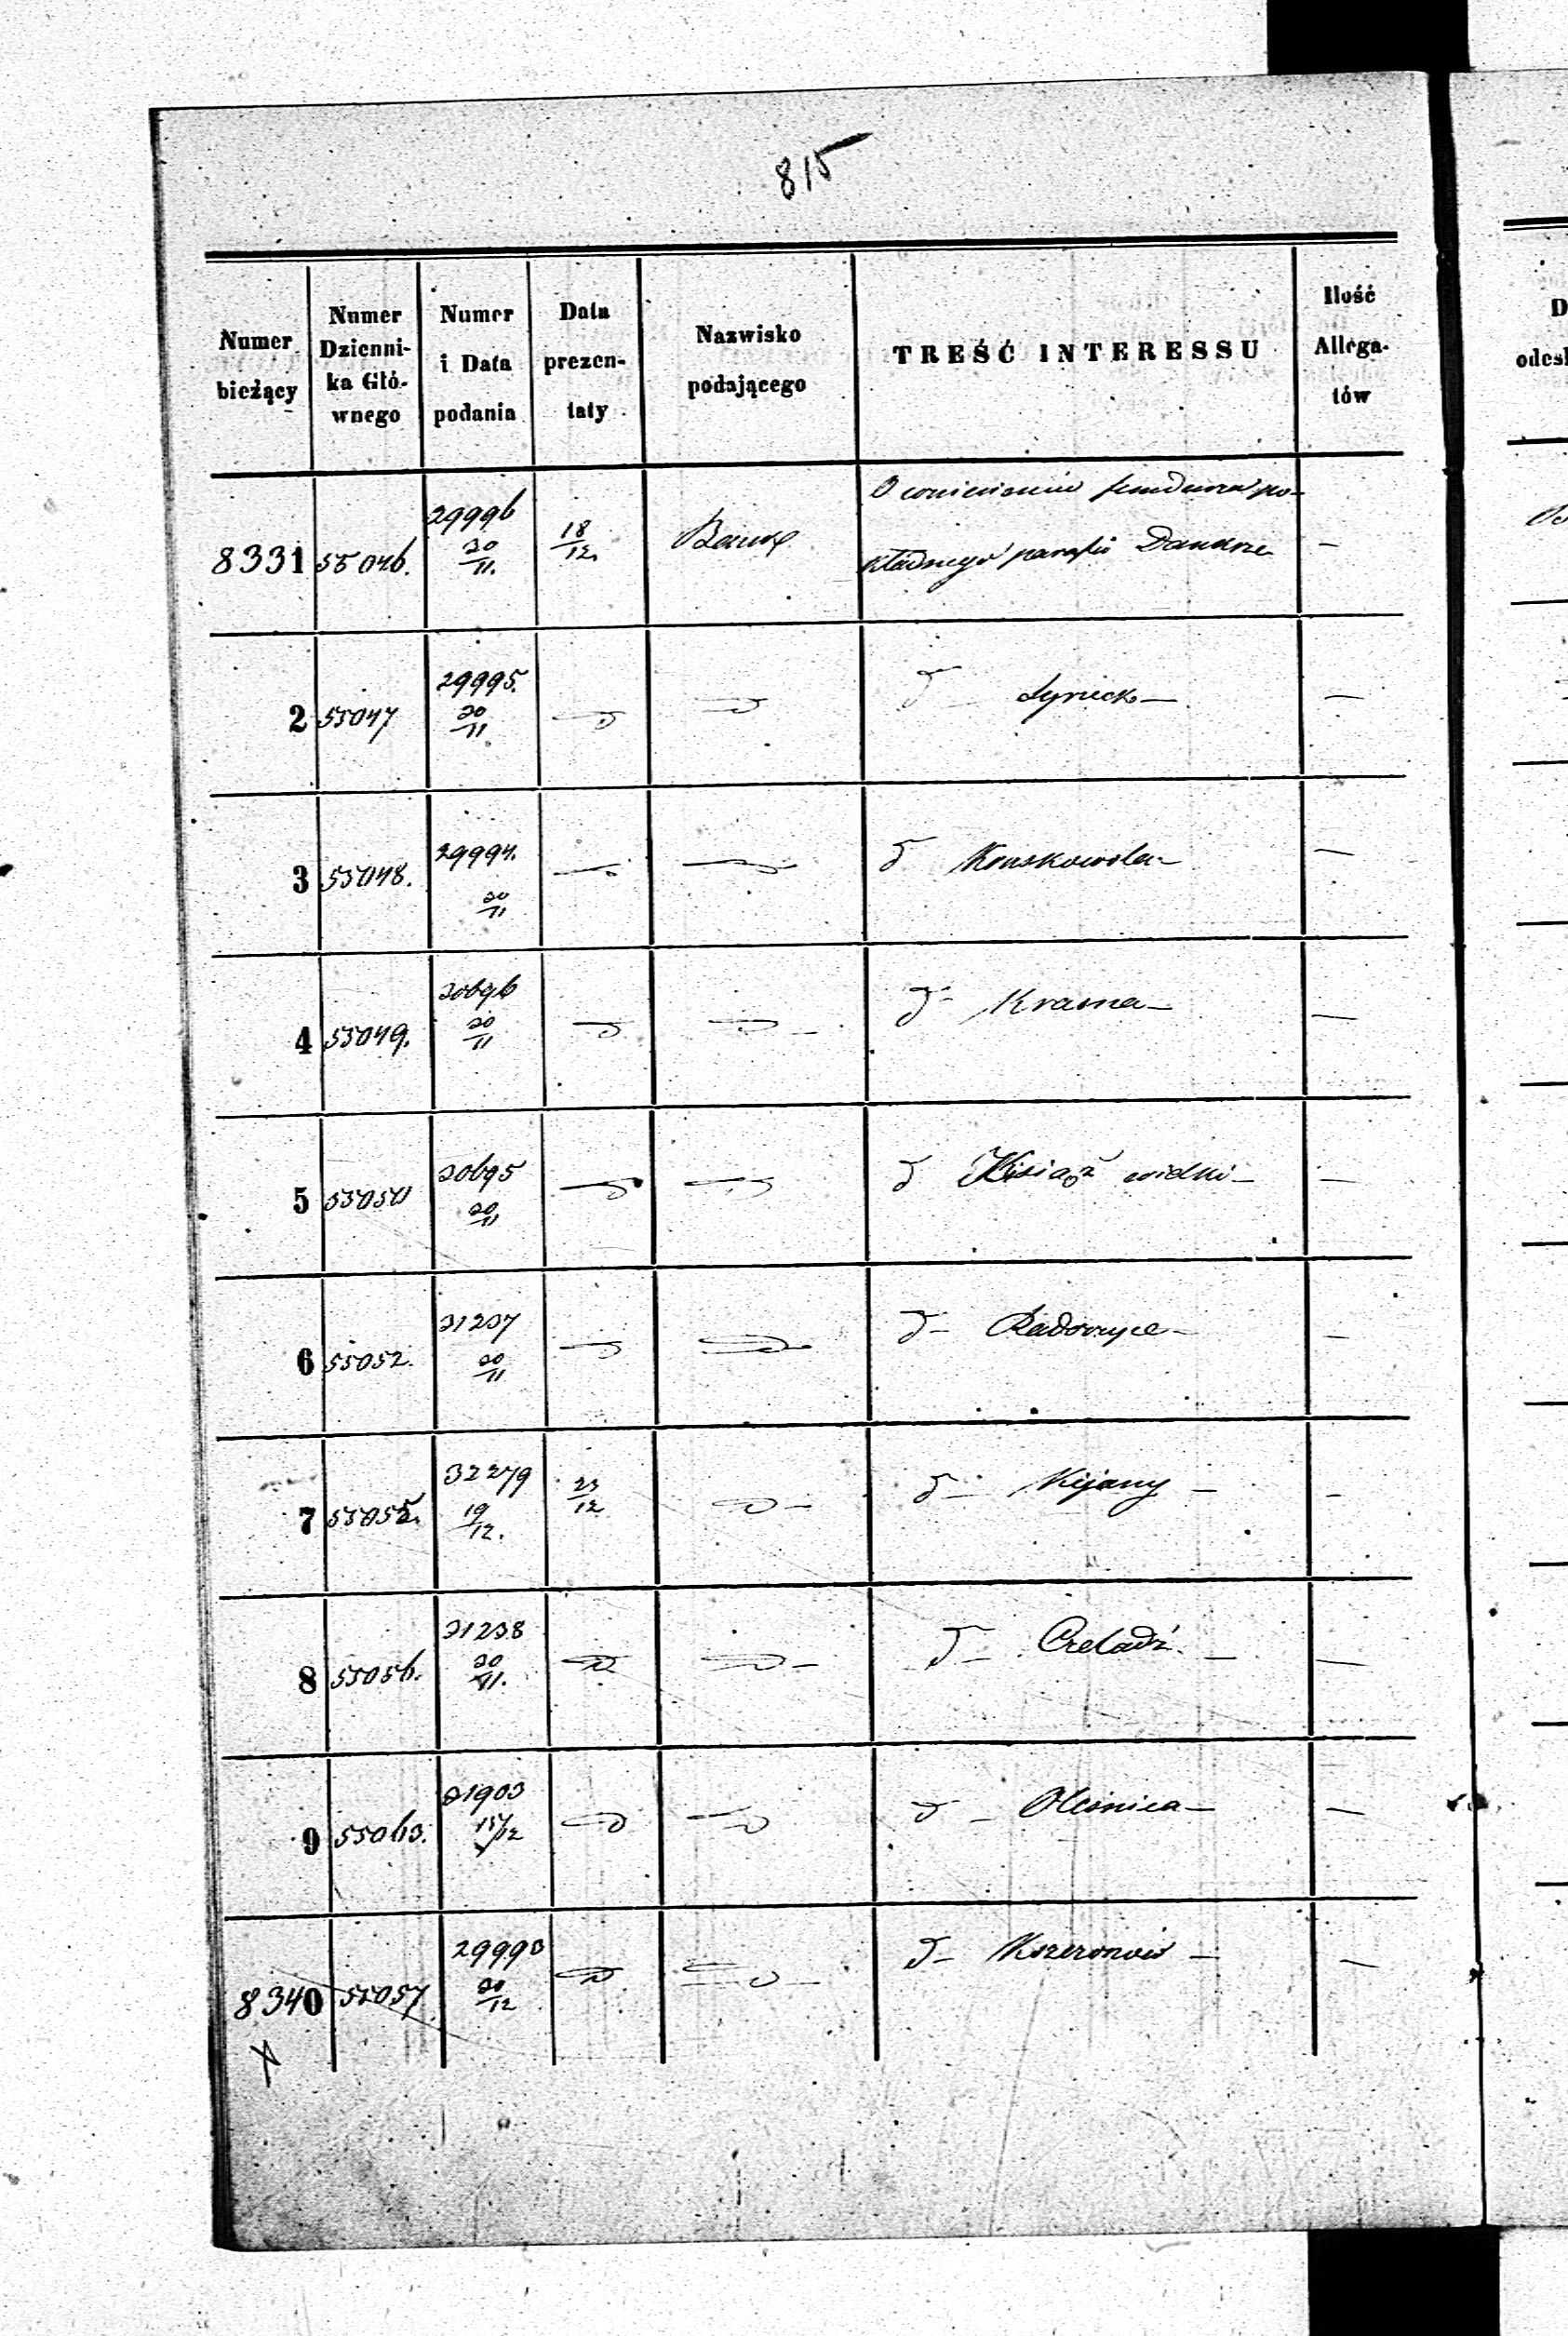 815
Numer bieżący | Numer Dzienni- ka Głó- wnego | Numer i Data podania | Data prezen- taty | Nazwisko podającego | TREŚĆ INTERESSU | Ilość Allega- tów
8331 | 55046. | 29996 20/11. | 18/12. | Bank | O wniesieniu funduszu po-
kładnego parafii Danusze | —
2 | 55047 | 29995. 20/11 | d | d | d Łyniecko — | —
3 | 55048. | 29994. 20/11 | — | — | d Konskowola — | —
4 | 55049. | 30696 20/11 | d | d — | d — Krasna — | —
5 | 55050 | 30695 20/11 | d | d | d Książ wielki — | —
6 | 55052. | 31237 20/11 | d | d | d — Radoszyce — | —
7 | 55055. | 32279 19/12. | 23/12 | d — | d — Kijany — | —
8 | 55056. | 31238 20/11. | d | d — | d — Czeladź. — | —
9 | 55063. | 31903 15/12 | d | d | d — Oleśnica — | —
8340 | 55057 | 29993 20/12 | d | d — | d — —
D
odesł